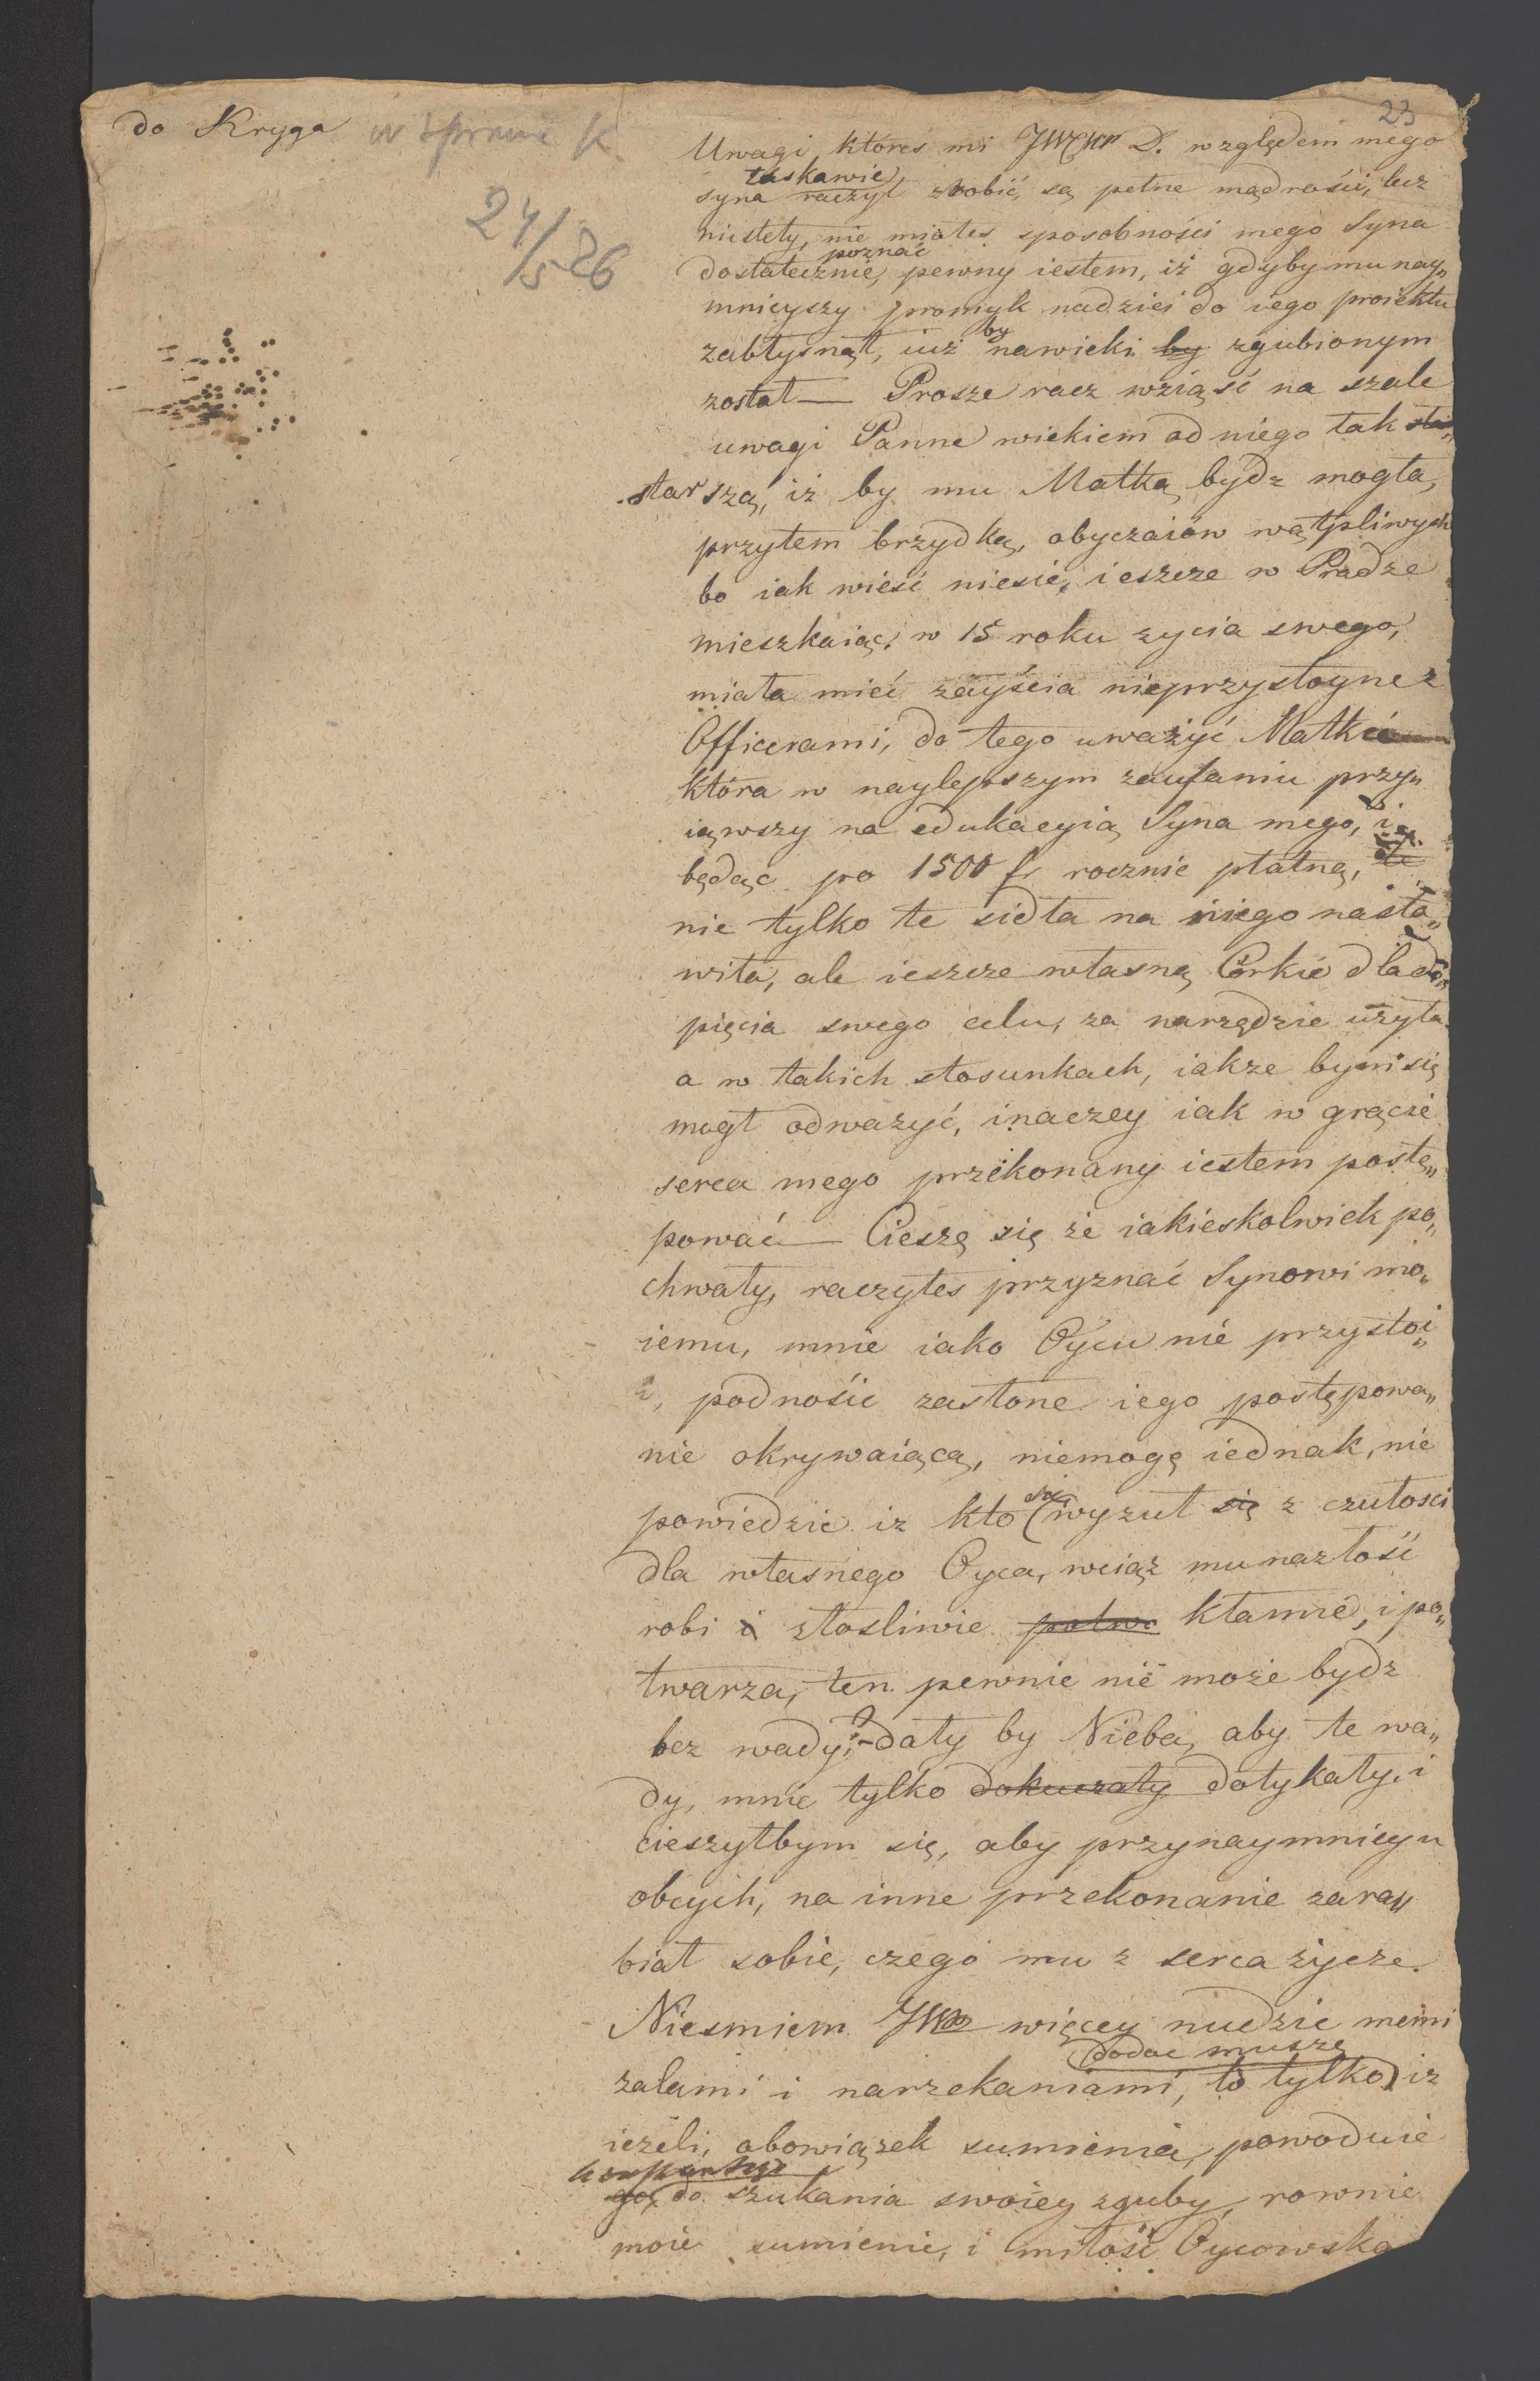 do Kryga w sprawie K.
24/5 26
23
Uwagi, któres mi JWKP D. względem mego
łaskawie
syna raczył zrobić, są pełne mądrości, lecz
niestety, nie miałes sposobności mego Syna
poznać
dostatecznie, pewny iestem, iż gdyby mu nay„
mnieyszy promyk nadziei do iego proiektu
by
zabłysnął, iuż nawieki by zgubionym
został — Prosze racz wziąść na szale
uwagi Panne wiekiem od niego tak
starszą, iż by mu Matką bydz mogła,
przytem brzydką, obyczaiów wątpliwych
bo iak wieść niesie, ieszcze w Pradze
mieszkaiąc, w 15 roku zycia swego,
miała mieć zayścia nieprzystoyne z
Officerami, do tego uważyć Matkie
która w naylepszym zaufaniu przy„
iąwszy na edukacyią Syna mego, i
będąc po 1500 fr rocznie płatną,
nie tylko te sidła na niego nasta„
wiła, ale ieszcze własną Córkie dla do„
pięcia swego celu, za narzędzie użyła
a w takich stosunkach, iakze bym się
mogł odważyć, inaczey iak w grącie
serca mego przekonany iestem postę„
pować — Cieszę się że iakieskolwiek po„
chwały, raczyłes przyznać Synowi mo„
iemu, mnie iako Oycu nie przystoi„
, podnośić zasłone iego postępowa„
nie okrywaiącą, niemogę iednak, nie
się
powiedzie iz kto wyzuł się z czułosci
dla własnego Oyca, wciąz mu nazłość
robi i złosliwie potwa kłamie, i po„
twarza, ten pewnie nie może bydz
bez wady; - dały by Nieba, aby te wa„
dy, mnie tylko dokuczały dotykały, i
cieszyłbym się, aby przynaymniey u
obcych, na inne przekonanie zara„
biał sobie, czego mu z serca życze.
Niesmiem JWP więcey nudzić memi
dodać muszę
zalami i narzekaniami, to tylko iz
ieżeli, obowiązek sumienia, powoduie
go, do szukania swoiey zguby, rownie
moie sumienie, i miłość Oycowska